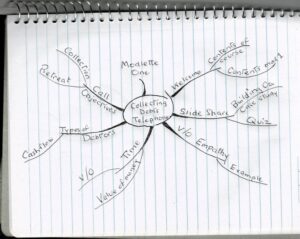 Modlette
One
Collecting
Debts
Telephone
Welcome
Contents of
course
Contents mod 1
Slide Share
Building on
case study
Quiz
V/O
Empathy
Example
Time
V/O
Value of money
Types of
Debtors
Cashflow
Call
Objectives
Collection
Retreat